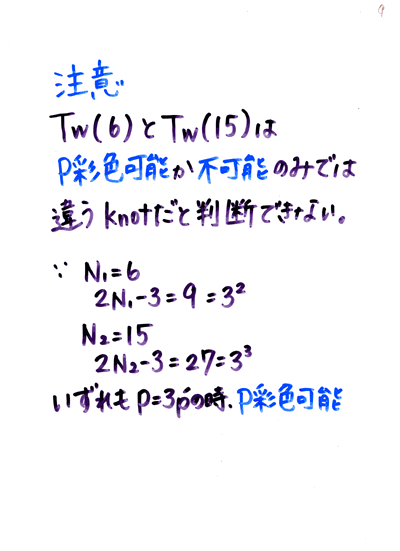 9
注意
Tw(6)とTw(15)は
P彩色可能か不可能のみでは
違うknotだと判断できない。
∵ N₁=6
2N₁-3=9=3²
N₂=15
2N₂-3=27=3³
いずれもp=3p'の時、P彩色可能